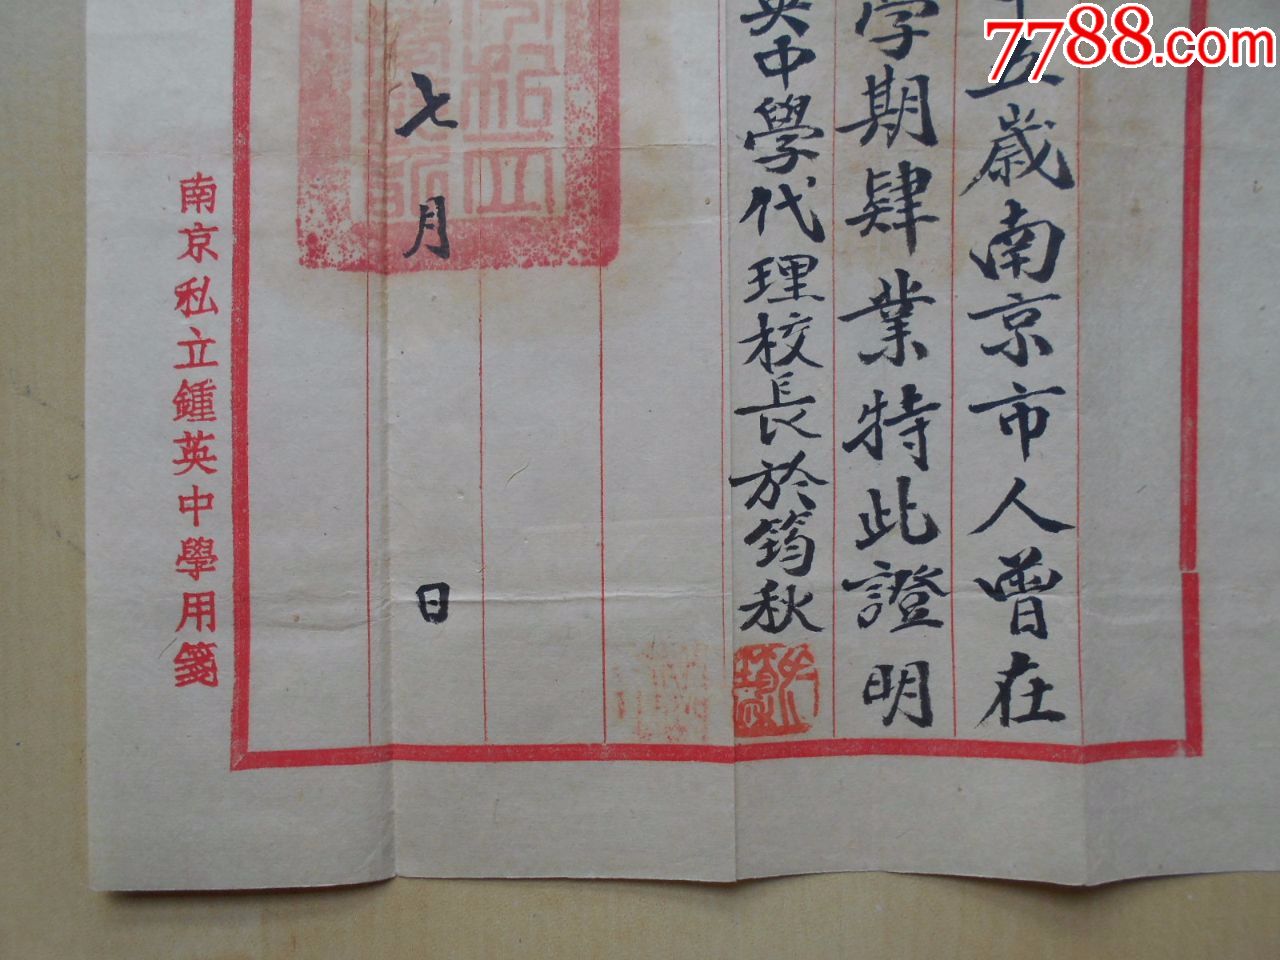 7788.com
五歲南京市人曾在
学期肄業特此證明
英中學代理校長於筠秋
七月 日
南京私立鍾英中學用箋